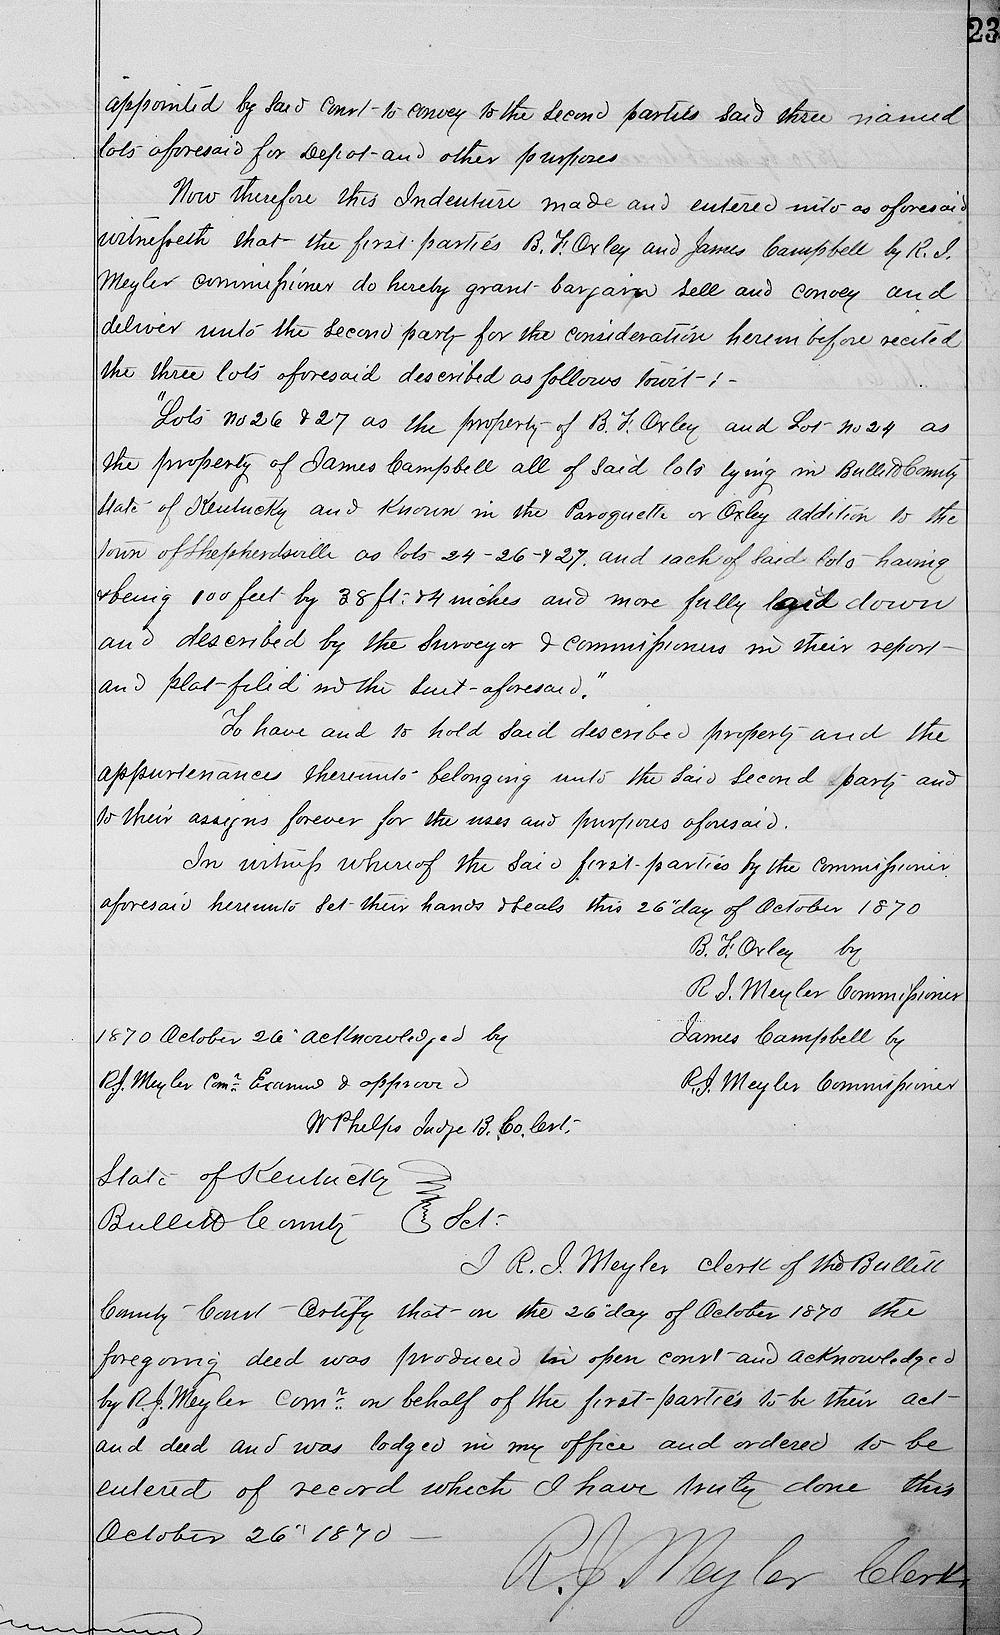 23
appointed by said Court to convey to the second parties said three named
lots aforesaid for Depot and other purposes
Now therefore this Indenture made and entered into as aforesaid
witnesseth that the first parties B. F. Oxley and James Campbell by R. J.
Meyler commissioner do hereby grant bargain sell and convey and
deliver unto the second party for the consideration herein before recited
the three lots aforesaid described as follows towit :-
"Lots No 26 & 27 as the property of B. F. Oxley and Lot No 24 as
the property of James Campbell all of said lots lying in Bullitt County
State of Kentucky and known in the Paroquette or Oxley addition to the
town of Shepherdsville as lots 24-26-&27. and each of said lots having
&being 100 feet by 38 ft: &4 inches and more fully laid down
and described by the Surveyor & commissioners in their report
and plat filed in the suit aforesaid."
To have and to hold said described property and the
appurtenances thereunto belonging unto the said second party and
to their assigns forever for the uses and purposes aforesaid.
In witness whereof the said first parties by the commissioner
aforesaid hereunto set their hands & seals this 26" day of October 1870
B. F. Oxley by
R J. Meyler Commissioner
1870 October 26" acknowledged by James Campbell by
R. J. Meyler Comr. Examd & approved R. J. Meyler Commissioner
W Phelps Judge B. Co. Crt.
State of Kentucky
Bullitt County Sct:
I R. J. Meyler Clerk of the Bullitt
County Court Certify that on the 26" day of October 1870 the
foregoing deed was produced in open court and acknowledged
by R. J. Meyler Comr. on behalf of the first parties to be their act
and deed and was lodged in my office and ordered to be
entered of record which I have truly done this
October 26" 1870 —
R. J. Meyler Clerk